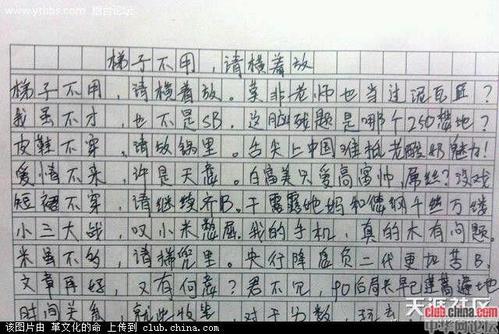 www.ythbs.com 烟台论坛
梯子不用,请横着放
梯子不用,请横着放。莫非老师也当过泥瓦匠?
我虽不才,也不是SB。这脑残题是哪个250想地?
皮鞋不穿,请放锅里。舌尖上中国谁抵老酸奶魅力!
爱情不来,许是天意。白富美只爱高富帅,屌丝?没戏
短裙不穿,请继续齐B。干露露她妈和
小三大战,叹小米憋屈。我的手机,真的木有问题。
米虽不多,请梯兜里。央行降息负二代更加苦B
文章再好,又有何意?君不见,90后局长早已遍地
时间关系,就此收笔。对于分数
天涯社区
club.china.com
该图片由 革文化的命 上传到 club.china.com